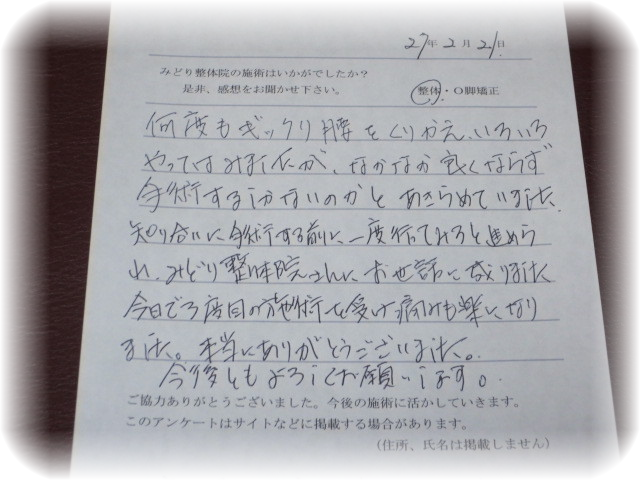 27年2月21日
みどり整体院の施術はいかがでしたか?
是非、感想をお聞かせ下さい。
整体・O脚矯正
何度もギックリ腰をくりかえ、いろいろ
やってはみましたが、なかなか良くならず
手術するしかないのかと あきらめていました。
知り合いに手術する前に、一度行ってみろと進めら
れ、みどり整体院さんに お世話に成りました
今日で3度目の施術を受け 痛みも楽になり
ました。本当にありがとうございました。
今後ともよろしくお願いします。
ご協力ありがとうございました。今後の施術に活かしていきます。
このアンケートはサイトなどに掲載する場合があります。
(住所、氏名は掲載しません)